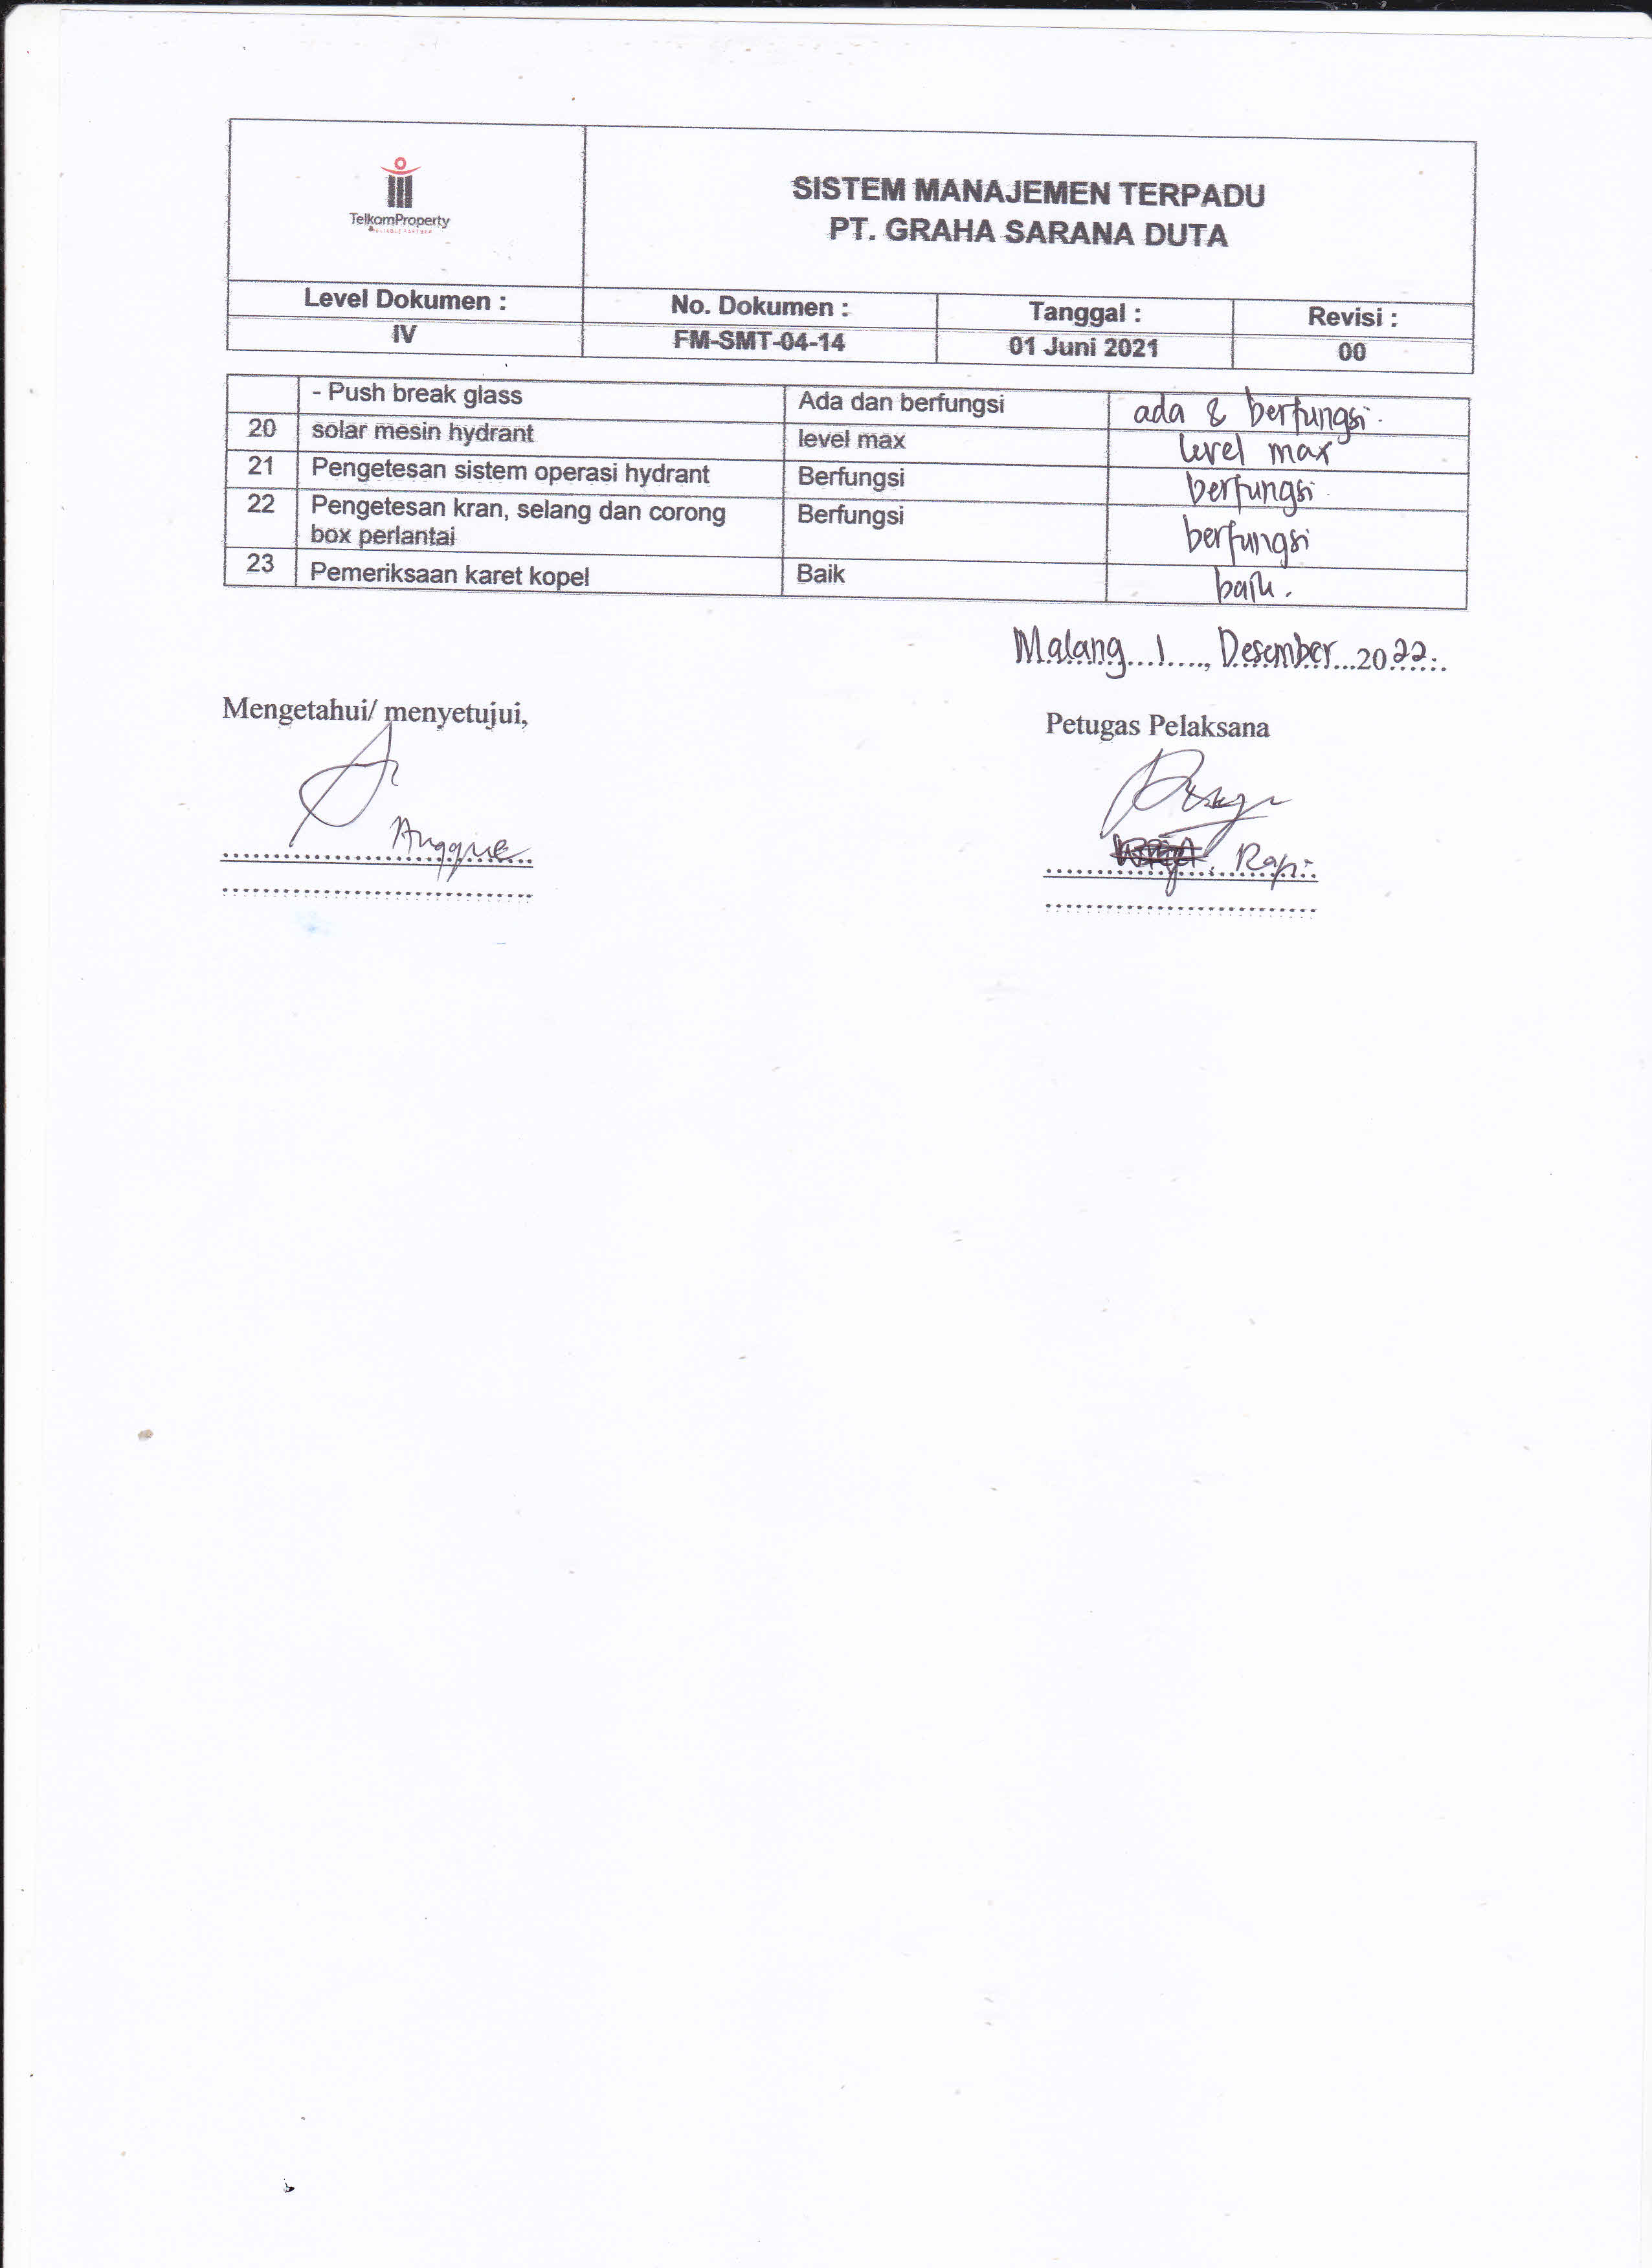 TelkomProperty
SISTEM MANAJEMEN TERPADU
PT. GRAHA SARANA DUTA
Level Dokumen : No. Dokumen : Tanggal : Revisi :
IV FM-SMT-04-14 01 Juni 2021 00
- Push break glass Ada dan berfungsi ada & berfungsi.
20 solar mesin hydrant level max level max
21 Pengetesan sistem operasi hydrant Berfungsi berfungsi.
22 Pengetesan kran, selang dan corong Berfungsi berfungsi
box perlantai
23 Pemeriksaan karet kopel Baik baik.
Malang...1...., Desember...2022..
Mengetahui/ menyetujui, Petugas Pelaksana
Rapi